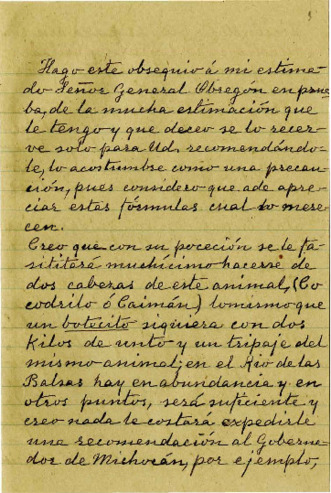 Hago este obsequio á mi estima-
do Señor General Obregón en prue
ba, de la mucha estimación que
le tengo y que deceo se lo recer-
ve solo para Ud. recomendándo-
le, lo acostumbre como una precau-
ción, pues considero que ade apre-
ciar estas fórmulas cual lo mere-
cen.
Creo que con su poceción se le fa-
sititará muchícimo hacerse de
dos cabezas de este animal, (Co
codrilo ó Caimán) lo mismo que
un botecito siquiera con dos
Kilos de unto y un tripaje del
mismo animal; en el Rio de las
Balsas hay en abundancia y en
otros puntos, será suficiente y
creo nada le costará expedirle
una recomendación al Goberna-
dor de Michocán, por ejemplo,